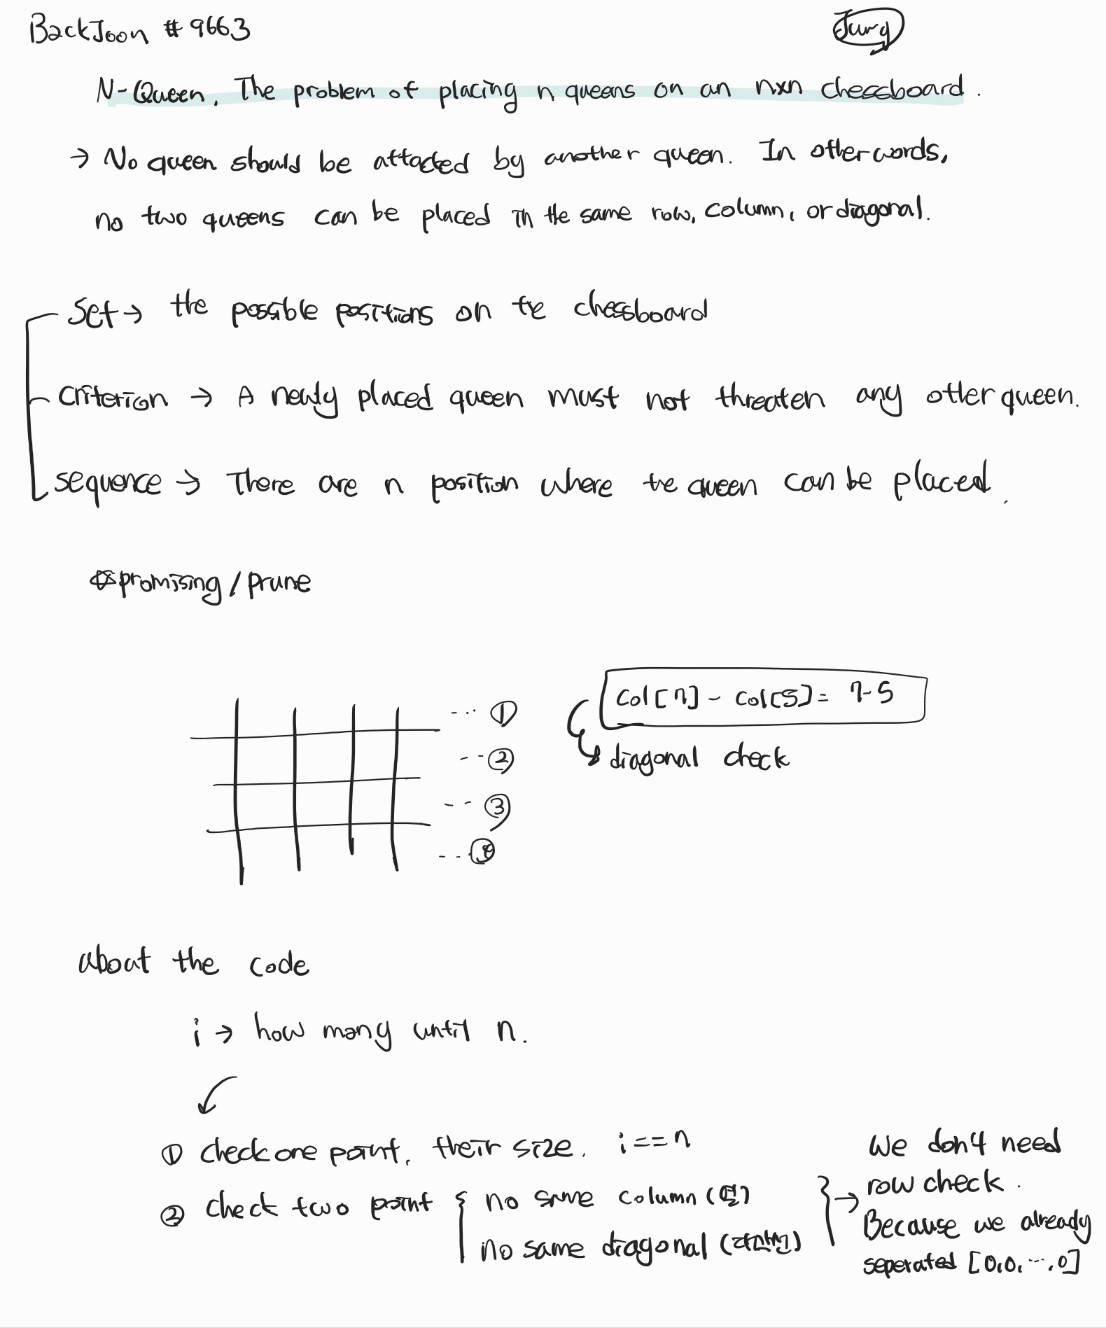 BackJoon # 9663
Jung
N-Queen, The problem of placing n queens on an nxn chessboard.
→ No queen should be attacked by another queen. In other words,
no two queens can be placed in the same row, column, or diagonal.
Set → the possible positions on the chessboard
criterion → A newly placed queen must not threaten any other queen.
sequence → There are n position where the queen can be placed.
promising / prune
col[7] - col[5] = 7-5
diagonal check
... ①
-- ②
-- ③
... ④
about the code
i → how many until n.
① check one point, their size. i==n
② check two point
no same column (열)
no same diagonal (대각선)
→ We don't need
row check.
Because we already
seperated [0,0, ..., 0]